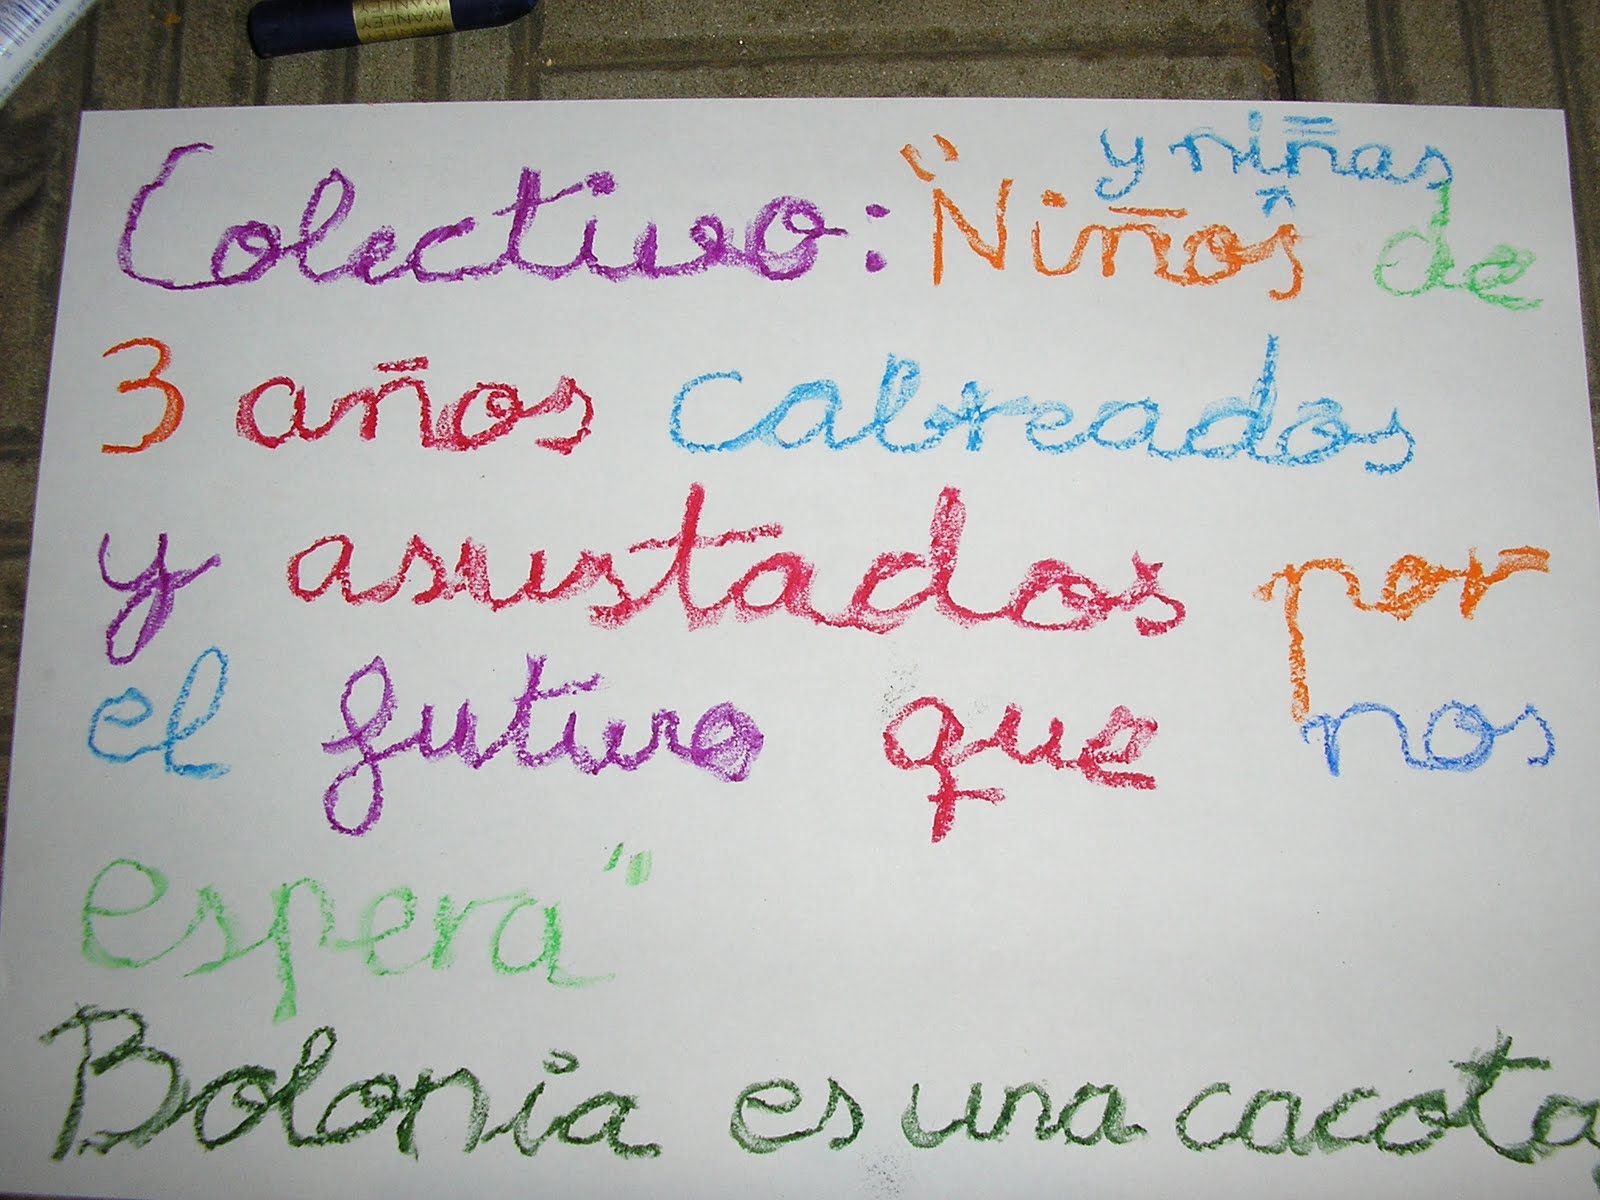 MANLEY
y niñas
Colectivo: "Niños de
3 años cabreados
y asustados por
el futuro que nos
espera"
Bolonia es una cacota